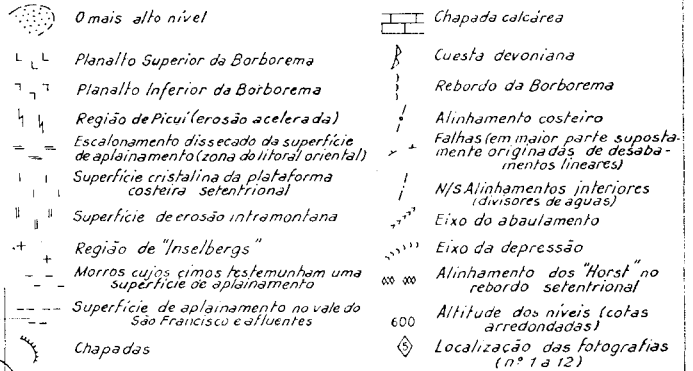 O mais alto nível
Planalto Superior da Borborema
Planalto Inferior da Borborema
Região de Picuí (erosão acelerada)
Escalonamento dissecado da superfície
de aplainamento (zona do litoral oriental)
Superfície cristalina da plataforma
costeira setentrional
Superfície de erosão intramontana
Região de "Inselbergs"
Morros cujos cimos testemunham uma
superfície de aplainamento
Superfície de aplainamento no vale do
São Francisco e afluentes
Chapadas
Chapada calcárea
Cuesta devoniana
Rebordo da Borborema
Alinhamento costeiro
Falhas (em maior parte suposta-
mente originadas de desaba-
mentos lineares)
N/S Alinhamentos interiores
(divisores de aguas)
Eixo do abaulamento
Eixo da depressão
Alinhamento dos "Horst" no
rebordo setentrional
600 Altitude dos níveis (cotas
arredondadas)
5 Localização das fotografias
(nº 1 a 12)